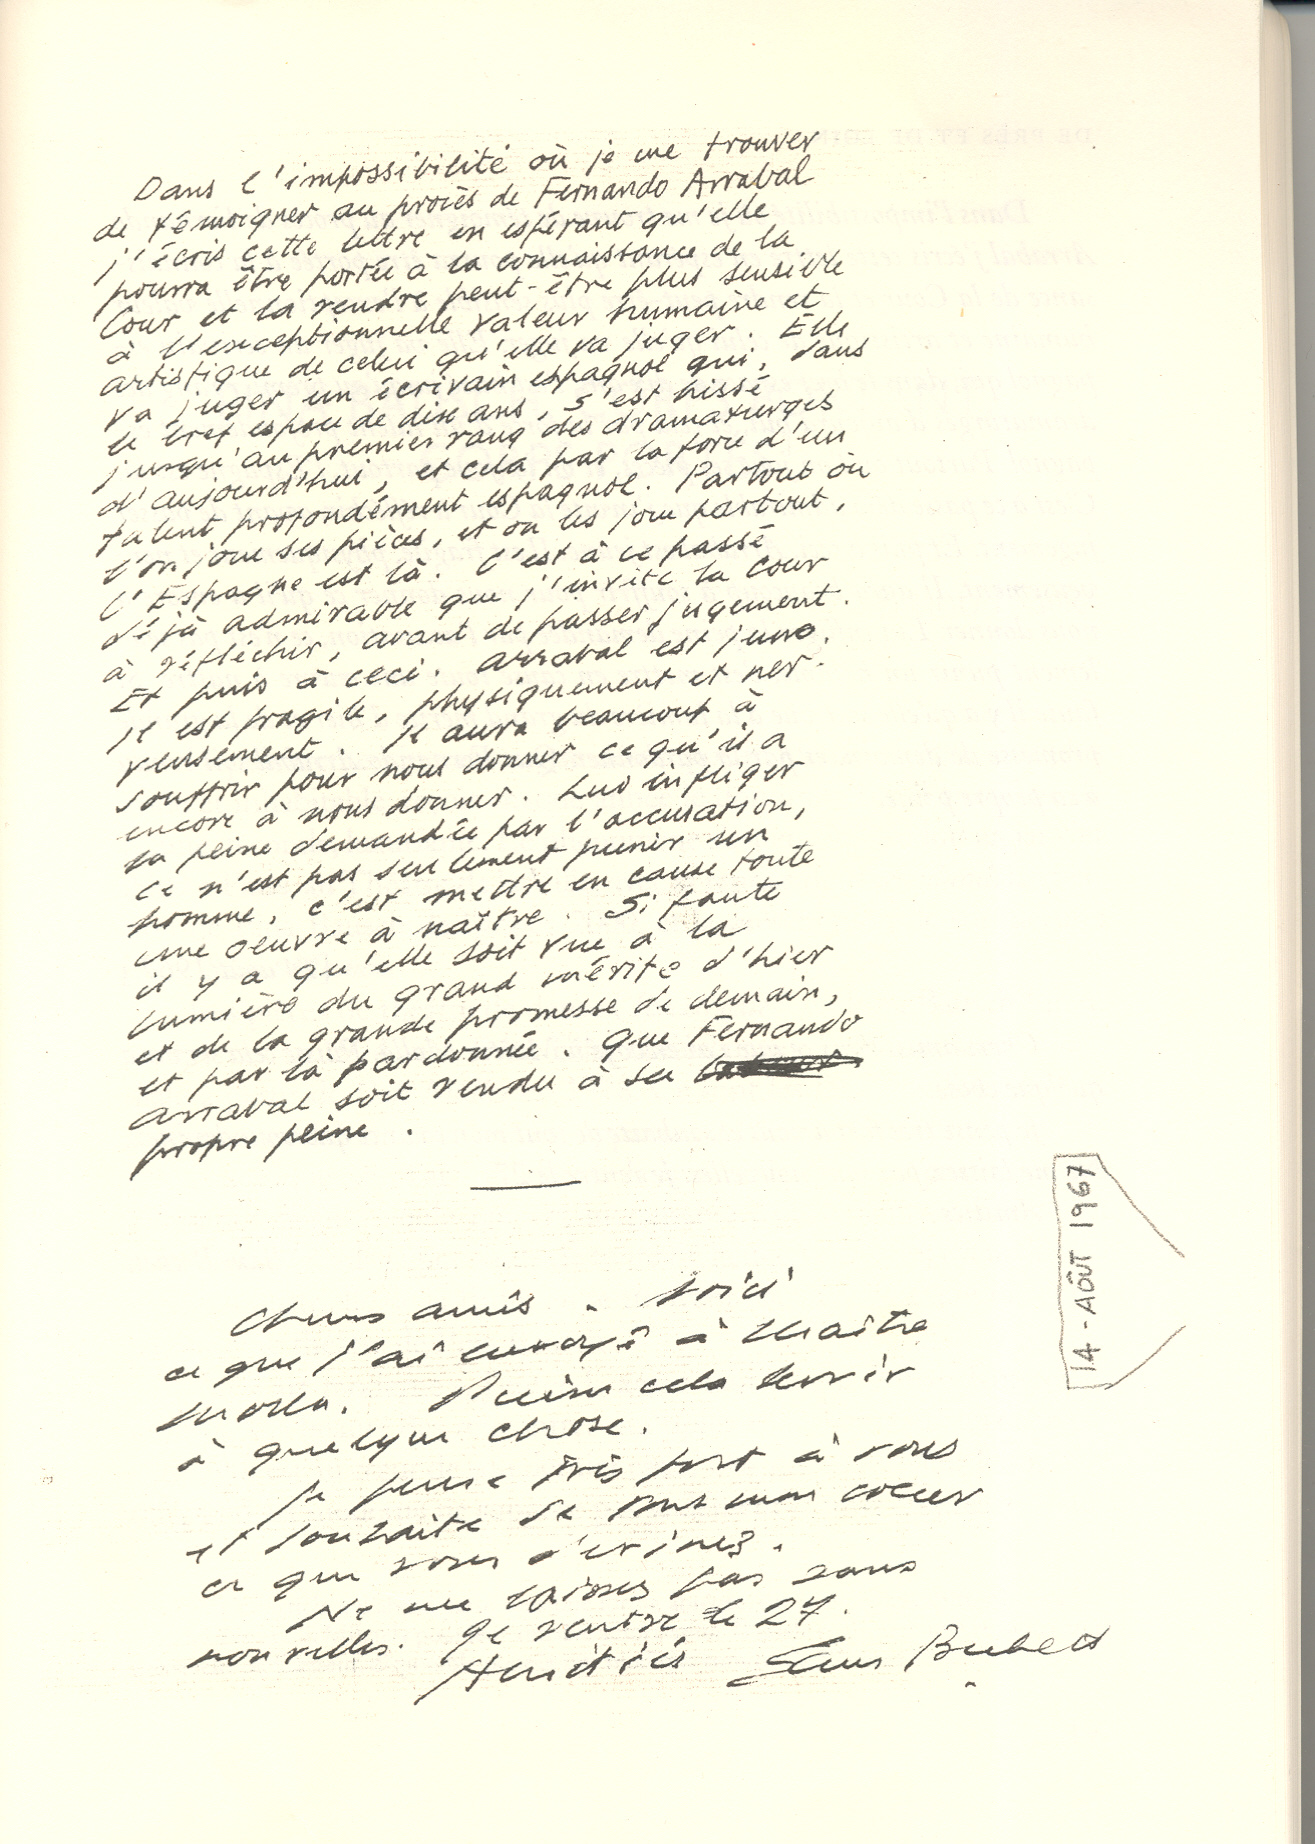 Dans l'impossibilité où je me trouver
de témoigner au procès de Fernando Arrabal
j'écris cette lettre en espérant qu'elle
pourra être portée à la connaissance de la
Cour et la rendre peut-être plus sensible
à l'exceptionnelle valeur humaine et
artistique de celui qu'elle va juger. Elle
va juger un écrivain espagnol qui, dans
le bref espace de dix ans, s'est hissé
jusqu'au premier rang des dramaturges
d'aujourd'hui, et cela par la force d'un
talent profondément espagnol. Partout où
l'on joue ses pièces, et on les joue partout,
l'Espagne est là. C'est à ce passé
déjà admirable que j'invite la cour
à réfléchir, avant de passer jugement.
Et puis à ceci. Arrabal est jeune.
Il est fragile, physiquement et ner-
veusement. Il aura beaucoup à
souffrir pour nous donner ce qu'il a
encore à nous donner. Lui infliger
la peine demandée par l'accusation,
ce n'est pas seulement punir un
homme, c'est mettre en cause toute
une oeuvre à naître. Si faute
il y a qu'elle soit vue à la
lumière du grand mérite d'hier
et de la grande promesse de demain,
et par là pardonnée. Que Fernando
Arrabal soit rendu à sa
propre peine.
Chers amis. Voici
ce que j'ai envoyé à Maître
Puisse cela servir
à quelque chose.
Je pense très fort à vous
et souhaite de tout mon coeur
ce que vous devinez.
Ne me laissez pas sans
nouvelles. Je rentre le 27.
Amitiés Sam Beckett
14 - AÔUT 1967